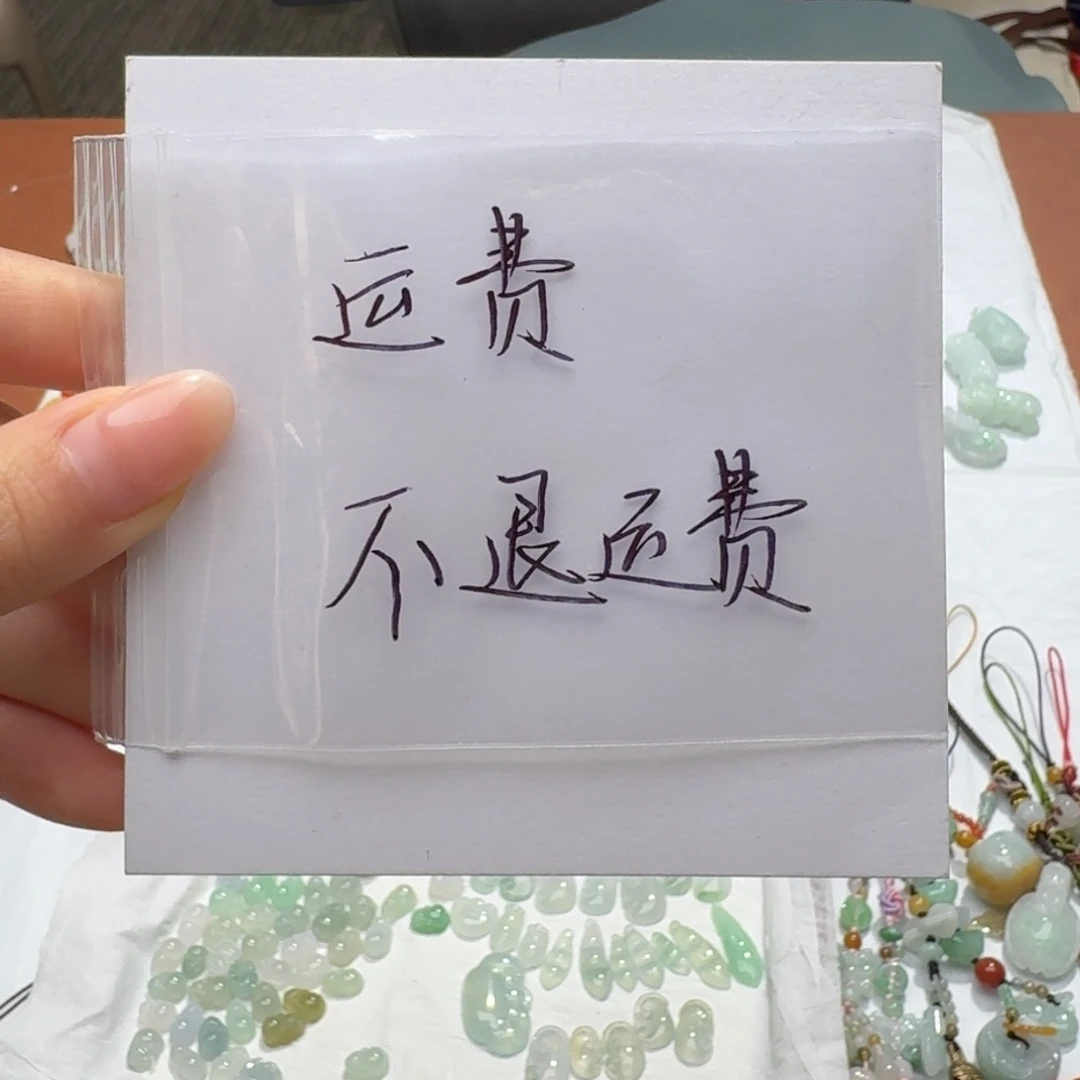 运费
不退运费